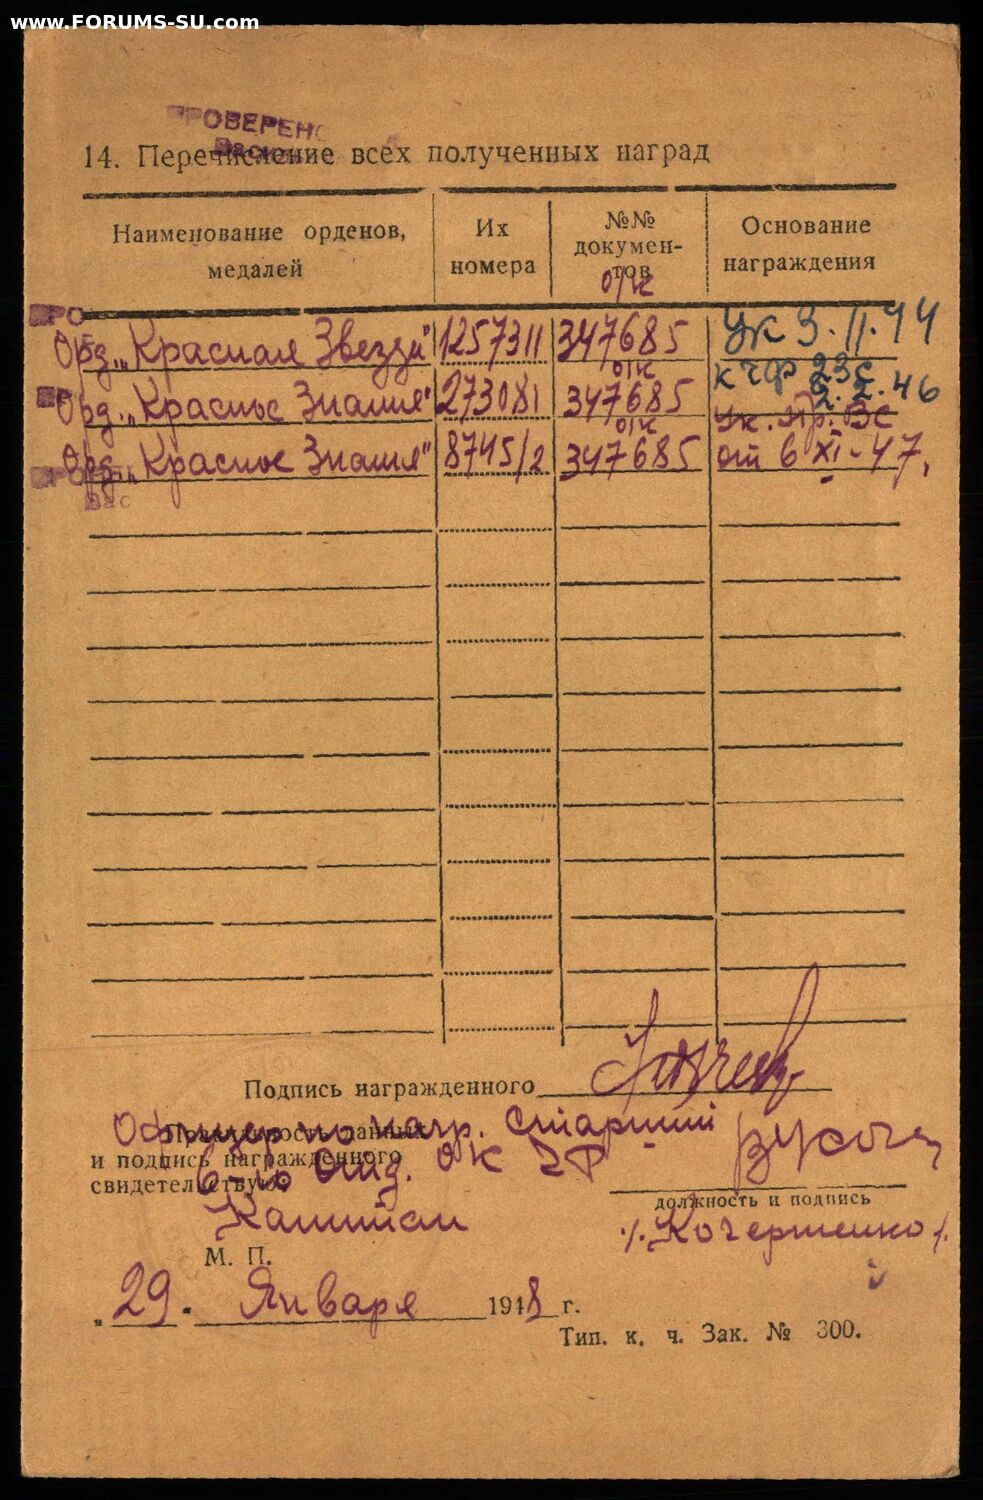 www.FORUMS-SU.com
ПРОВЕРЕНО
14. Перечисление всех полученных наград
Наименование орденов, медалей
Их номера
№№ документов
Основание награждения
о/к
Орд. „Красная Звезда" 1257311 347685 Ук 3.II.44
о/к
Орд. „Красное Знамя" 273081 347685 к ЧФ 23с 2.2.46
о/к
Орд. „Красное Знамя" 8745/2 347685 Ук. Пр. ВС от 6 XI-47.
Вас
Подпись награжденного
Правильность данных
и подпись награжденного
свидетельствую:
Офицер по нагр. Старший
6-го Отд. ОК ЧФ
Капитан
должность и подпись
/.Кочерженко/.
М. П.
„29. Января 1948 г.
Тип. к. ч. Зак. № 300.